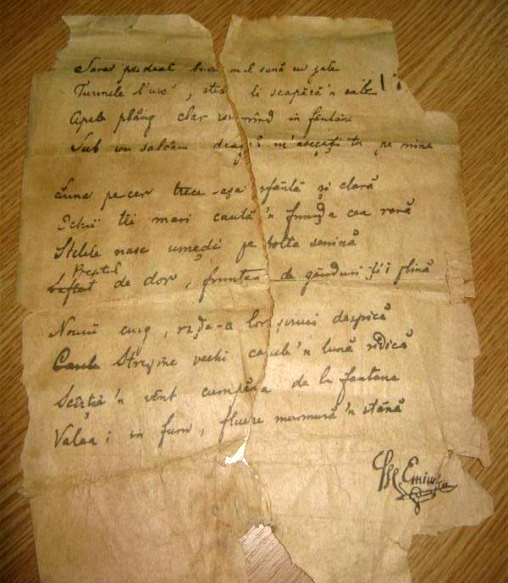 Sara pe deal buciumul sună cu jale
Turmele l'urc, stele le scapără 'n cale
Apele plâng clar isvorînd în fântâni
Sub un salcâm dragă m'aștepți tu pe mine
Luna pe cer trece-așa sfântă și clară
Ochii tăi mari caută 'n frunza cea rară
Stelele nasc umezi pe bolta senină
Peptul
de dor, fruntea de gânduri ți-i plină
Nourii curg, raze-a lor șiruri despică
Streșine vechi casele 'n lună ridică
Scîrțâie 'n vînt cumpăna de la fântână
Valea-i în fum, fluere murmură 'n stână
M. Eminescu